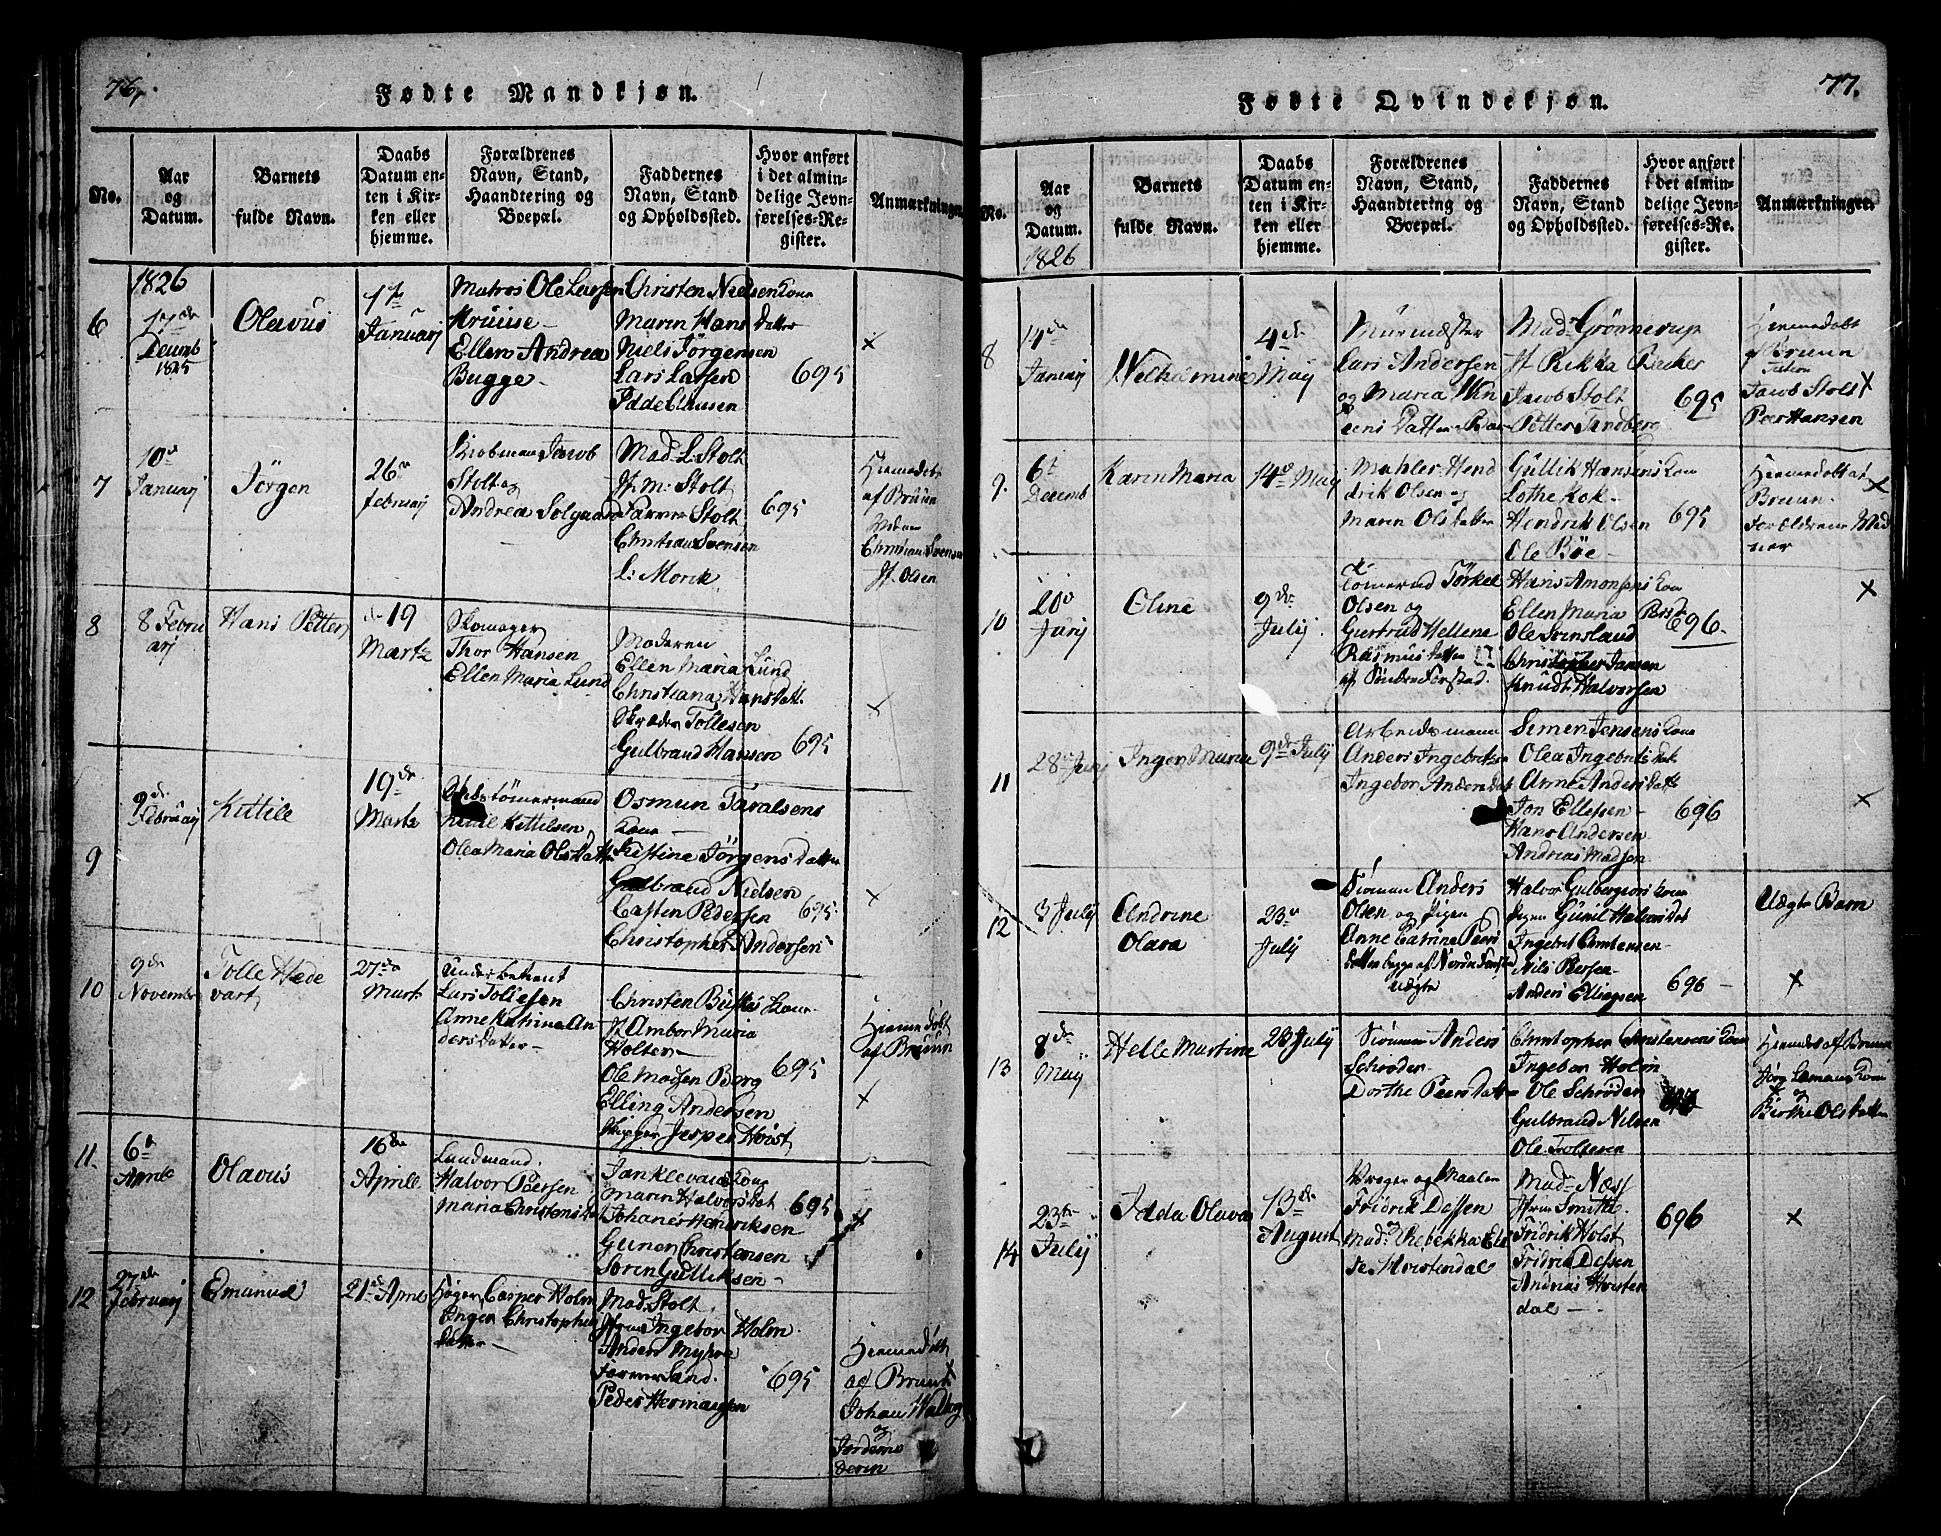 76.
Fødte Mandkjøn.
No.
Aar
og
Datum.
Barnets
fulde Navn.
Daabs
Datum en-
ten i Kir-
ken eller
hjemme.
Forældrenes
Navn, Stand,
Haandtering og
Boepæl.
Faddernes
Navn, Stand
og Opholdssted.
Hvor anført
i det almin-
delige Jevn-
førelses-Re-
gister.
Anmærkninger.
6
1826
17de
Decemb
1825
Olavus
1te
Januarj
Matros Ole Larsen
Kruuse
Ellen Andrea
Bugge
Christen Nielsen Kone
Maren Hans Datter
Niels Jörgensen
Lars Larsen
Idde Clausen
695
x
7
10de
Januarj
Jörgen
26de
Februarj
Kiöbman Jacob
Stolt og
Andrea Solgaard
Mad. L. Stolt
Jf. M. Stolt
Stolt
Christian Svensen
L: Morck
695
Hiemedöbt
af Bruun
Christian Svensen
Jf. Olsen
8
8 Febru
arj
Hans Petter
19
Martz
Skomager
Thor Hansen
Ellen Maria Lund
Moderen
Ellen Maria Lund
Christiana Hansdatt.
Skræder Tollesen
Gulbrand Hansen
695
x
9
9de
Februarj
Kittile
19de
Martz
Skibstömermand
Kittilsen
Olea Maria Olsdatter
Osmun Taralsens
Kone
Kistine Jörgensdatter
Gulbrand Nielsen
Casten Pedersen
Christopher Andersen
695
x
10
9de
November
Tolle Hede
vart
27de
Mart.
Underbetient
Lars Tollesen
Anne Katrina An
dersdatter
Christen Kone
Jf. Ambor Maria
Holter
Ole Madsen Berg
Elling Andersen
Skipper Jesper Höist
695
Hiemedöbt
af Bruun
x
11.
6te
Aprile
Olavus
16de
Aprille
Landmand
Halvor Peersen
Maria Christensdat
Jan Klevans Kone
Maren Halvorsdat
Johanes Hendriksen
Guner Christensen
Soren Gulliksen
695
12
27de
Februarj
Emanuel
21de Aprile
Höger Casper Holm
Inger Christophers
datter
Mad. Stolt
Jfru Ingebor Holm
Anders Myhre
Farver Sand.
Peder Hermansen
695
Hiemedöbt
af Bruun
Johan Walberg
og
Jordemo
deren
77.
Fødte Qvindekjøn.
No.
Aar
og
Datum.
1826
Barnets
fulde Navn.
Daabs
Datum en-
ten i Kir-
ken eller
hjemme.
Forældrenes
Navn, Stand,
Haandtering og
Boepæl.
Faddernes
Navn, Stand
og Opholdssted.
Hvor anført
i det almin-
delige Jevn-
førelses-Re-
gister.
Anmærkninger.
8
14de
Januarj
Welhelmine
4de
Maij
Muurmester
Lars Andersen
og Maria
Datter
Madr Grönnerup
Jf. Rikka Becker
Jacob Stolt
Petter Tindberg
695
Hiemedöbt
af Bruun
Jacob Stolt x
Peer Hansen
9.
6te
Decemb
Karen Maria
14de Maij
Mahler Hend
drik Olsen og
Maren Olsdatter
Gullik Hansens Kone
Lothe Kok
Hendrik Olsen
Ole Böe
695
Hiemedöbt af
Bruun
Forældrene
x
10
20de
Junj
Oline
9de
Julij
Tömermd Törkel
Olsen og
Gurtrud Hellene
Rasmusdatter
af Söndre Forstad
Hans Amonsens Kone
Ellen Maria
Ole
Christopher Jansen
Knudt Halvorsen
696
x
11
28de Junj
Inger Maria
9de Julij
Arbeidsmann
Anders Ingebretsen
Ingebor Andersdat
Simen Jensens Kone
Olea Ingebretsdat
Anne Andersdatt
Jon Ellefsen
Hans Andersen
Andreas Madsen
696
x
12
3 Julij
Andrine
Olava
23de
Julij
Siöman Anders
Olsen og Pigen
Anne Catrina Peers
datter begge af Nordre Forstad
Uægte
Halvor Gulbergsens Kone
Pigen Gunil Halvorsdat
Ingebret Christensen
Nils Peersen
Anders Ellingsen
696
Uægte Barn
x
13
8de
Maij
Helle Martine
23 Julij
Siöman Anders
Schröder
Dorthe Peersdatter
Christopher Christensens Kone
Ingebor Holm
Ole Schröder
Gulbrand Nilsen
Ole Tollesen
Hiemedöbt af Bruun
Kone
og
Berthe Olsdatter
14
23de
Julij
Idda Olava
13de
August
Vrager og Maaler
Fridrik Dessen
Madr Rebekka Else
Hvistendal
Madr Næss
Jfru Smitth
Fridrik Holst
Fridrik Dessen
Andreas Hvisten
dal
696
x